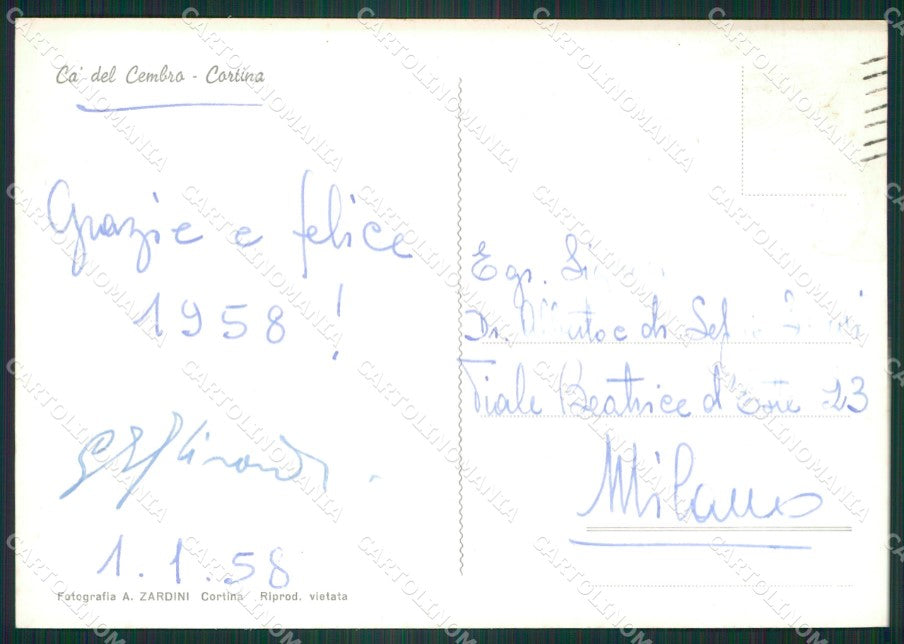 Ca' del Cembro - Cortina
Grazie e felice
1958!
1.1.58
Fotografia A. ZARDINI Cortina Riprod. vietata
Egr.
Dr. e
Viale Beatrice d' 23
Milano
CARTOLINOMANIA